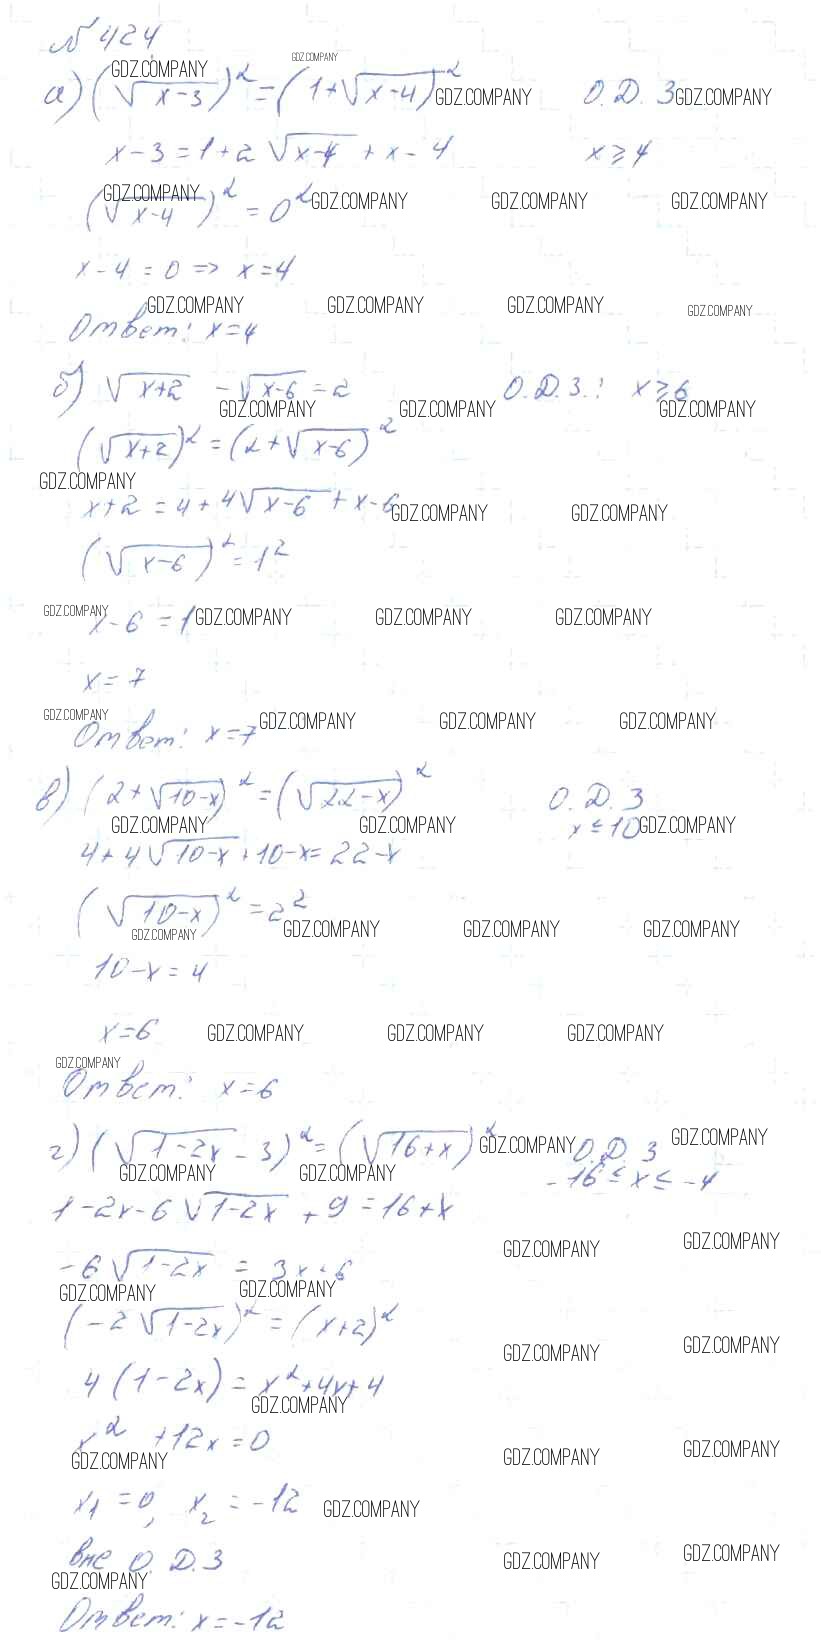 № 424
GDZ.COMPANY GDZ.COMPANY
а) (√(x-3))² = (1+√(x-4))² GDZ.COMPANY О.Д.З GDZ.COMPANY
x-3 = 1+2√(x-4) + x-4 x ⩾ 4
GDZ.COMPANY
(√(x-4))² = 0² GDZ.COMPANY GDZ.COMPANY GDZ.COMPANY
x-4 = 0 => x = 4
GDZ.COMPANY GDZ.COMPANY GDZ.COMPANY GDZ.COMPANY
Ответ: x=4
б) √(x+2) - √(x-6) = 2 О.Д.З.: x ⩾ 6
GDZ.COMPANY GDZ.COMPANY GDZ.COMPANY
(√(x+2))² = (2+√(x-6))²
GDZ.COMPANY
x+2 = 4+4√(x-6) + x-6 GDZ.COMPANY GDZ.COMPANY
(√(x-6))² = 1²
GDZ.COMPANY
x-6 = 1 GDZ.COMPANY GDZ.COMPANY GDZ.COMPANY
x = 7
GDZ.COMPANY GDZ.COMPANY GDZ.COMPANY GDZ.COMPANY
Ответ: x=7
в) (2+√(10-x))² = (√(22-x))² О.Д.З
GDZ.COMPANY GDZ.COMPANY x ≤ 10 GDZ.COMPANY
4+4√(10-x)+10-x=22-x
(√(10-x))² = 2²
GDZ.COMPANY GDZ.COMPANY GDZ.COMPANY GDZ.COMPANY
10-x = 4
x=6 GDZ.COMPANY GDZ.COMPANY GDZ.COMPANY
GDZ.COMPANY
Ответ: x=6
г) (√(1-2x) - 3)² = (√(16+x))² GDZ.COMPANY О.Д.З GDZ.COMPANY
GDZ.COMPANY GDZ.COMPANY -16 ≤ x ≤ -4
1-2x-6√(1-2x) + 9 = 16+x
GDZ.COMPANY GDZ.COMPANY
-6√(1-2x) = 3x+6
GDZ.COMPANY GDZ.COMPANY
(-2√(1-2x))² = (x+2)²
GDZ.COMPANY GDZ.COMPANY
4(1-2x) = x²+4x+4
GDZ.COMPANY
x² +12x = 0
GDZ.COMPANY GDZ.COMPANY GDZ.COMPANY
x₁ = 0, x₂ = -12 GDZ.COMPANY
вне О.Д.З
GDZ.COMPANY GDZ.COMPANY GDZ.COMPANY
Ответ: x=-12